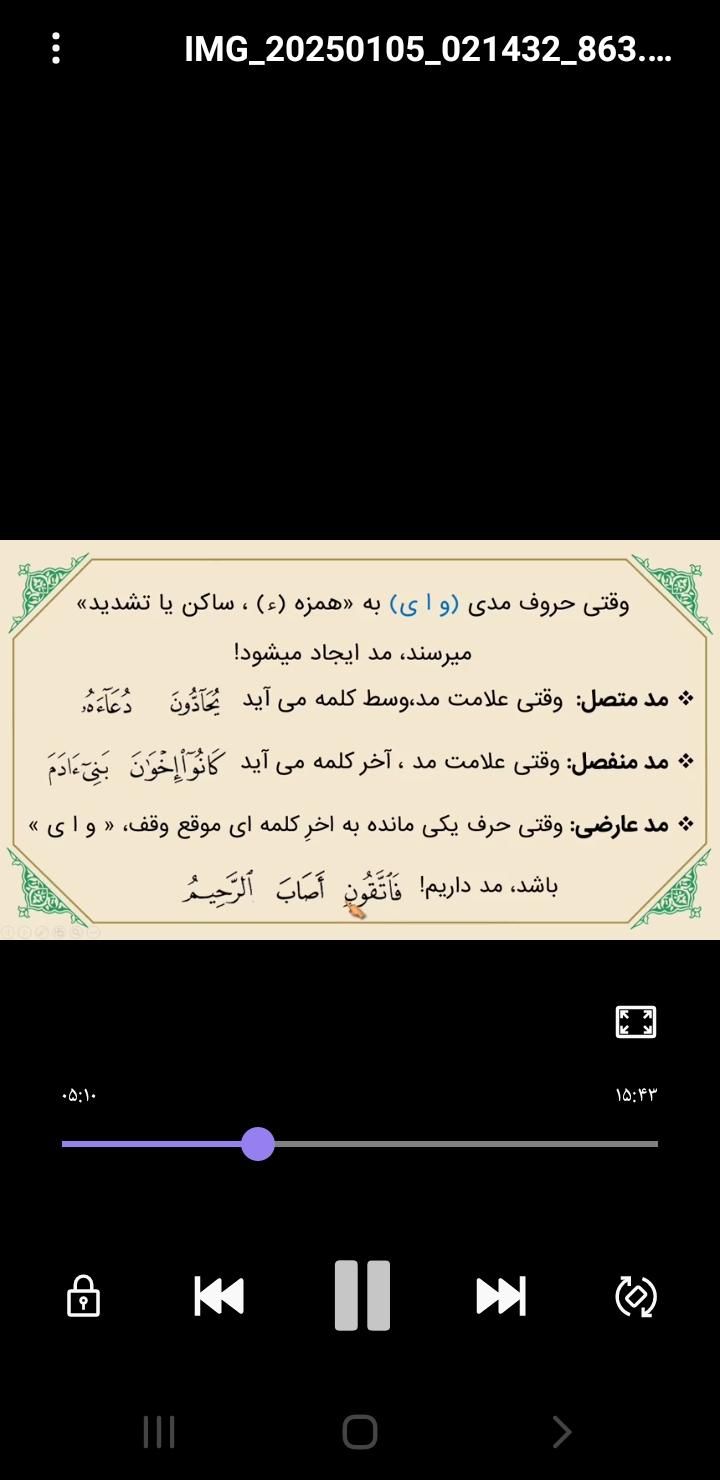 IMG_20250105_021432_863....
وقتی حروف مدی (و ا ی) به «همزه (ء) ، ساکن یا تشدید»
میرسند، مد ایجاد میشود!
❖ مد متصل: وقتی علامت مد،وسط کلمه می آید يُحَآدُّونَ دُعَآءَهُۥ
❖ مد منفصل: وقتی علامت مد ، آخر کلمه می آید كَانُوٓاْإِخْوَٰنَ بَنِيٓءَادَمَ
❖ مد عارضی: وقتی حرف یکی مانده به اخرِ کلمه ای موقع وقف، « و ا ی »
باشد، مد داریم! فَٱتَّقُونِ أَصَابَ ٱلرَّحِيمُ
۰۵:۱۰ ۱۵:۴۳